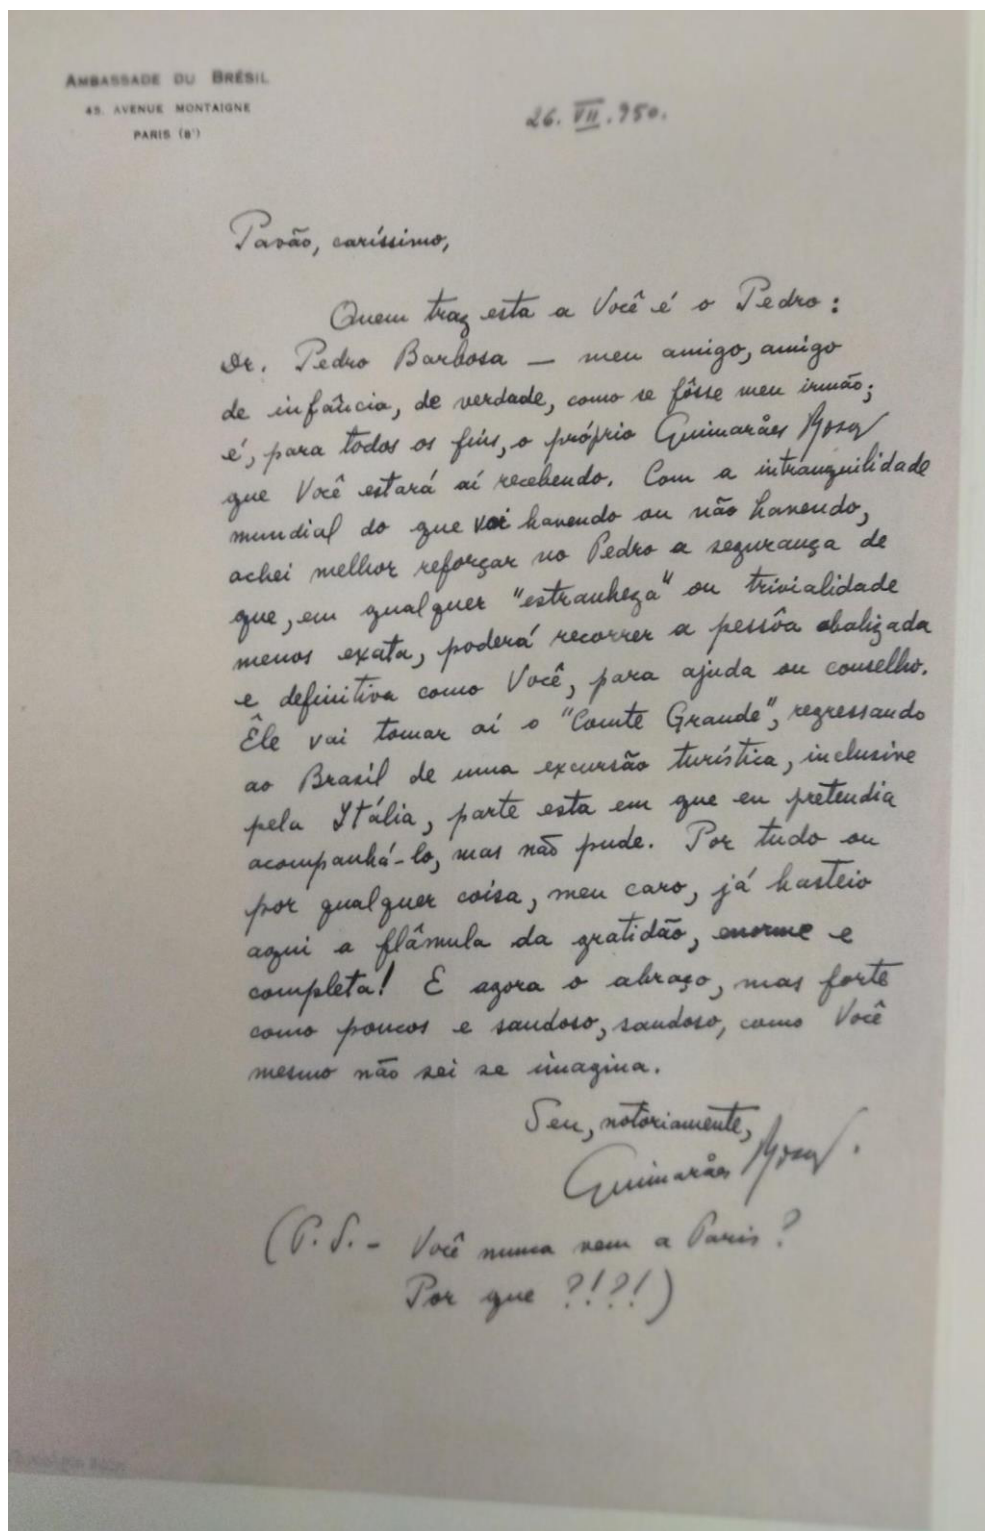 AMBASSADE DU BRÉSIL
45, AVENUE MONTAIGNE
PARIS (8ᵉ)
26. VII. 950.
Pavão, caríssimo,
Quem traz esta a Você é o Pedro:
Dr. Pedro Barbosa — meu amigo, amigo
de infância, de verdade, como se fôsse meu irmão;
é, para todos os fins, o próprio Guimarães Rosa
que Você estará aí recebendo. Com a intranquilidade
mundial do que vai havendo ou não havendo,
achei melhor reforçar no Pedro a segurança de
que, em qualquer "estranheza" ou trivialidade
menos exata, poderá recorrer a pessôa abalizada
e definitiva como Você, para ajuda ou conselho.
Êle vai tomar aí o "Conte Grande", regressando
ao Brasil de uma excursão turística, inclusive
pela Itália, parte esta em que eu pretendia
acompanhá-lo, mas não pude. Por tudo ou
por qualquer coisa, meu caro, já hasteio
aqui a flâmula da gratidão, enorme e
completa! E agora o abraço, mas forte
como poucos e saudoso, saudoso, como Você
mesmo não sei se imagina.
Seu, notòriamente,
Guimarães Rosa.
(P.S. — Você nunca vem a Paris?
Por que ?!?!)